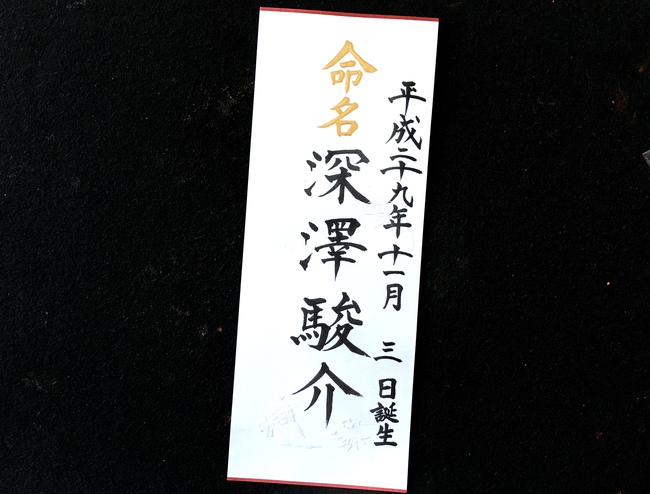 平成二十九年十一月 三 日誕生
命名
深澤駿介